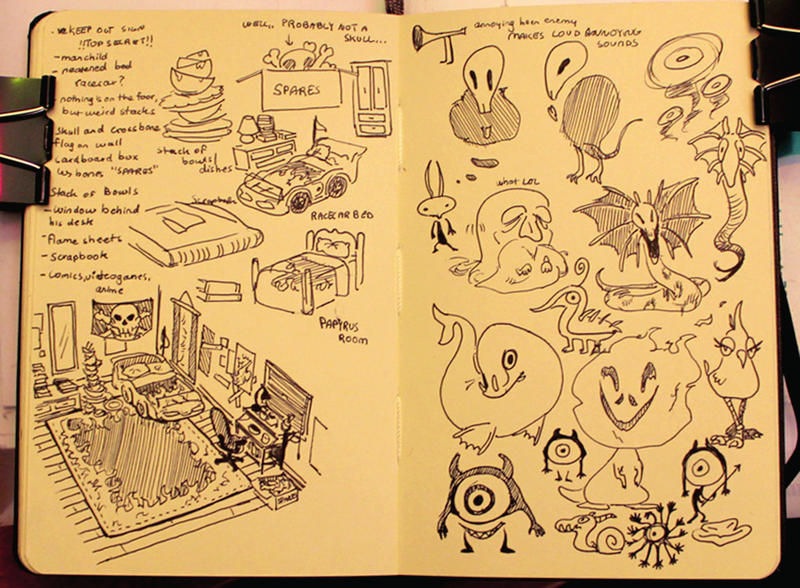 KEEP OUT SIGN
!!TOP SECRET!!
- manchild
- neatened bed
racecar?
- nothing is on the floor,
but weird stacks
Skull and crossbone
flag on wall
Cardboard box
w/ bones "SPARES"
Stack of Bowls
- window behind
his desk
- Flame sheets
- Scrapbook
- Comics, videogames,
anime
WELL.. PROBABLY NOT A
SKULL...
SPARES
stack of
bowls/
dishes
RACECAR BED
Scrapbook
PAPYRUS
ROOM
annoying horn enemy
MAKES LOUD ANNOYING
SOUNDS
what LOL